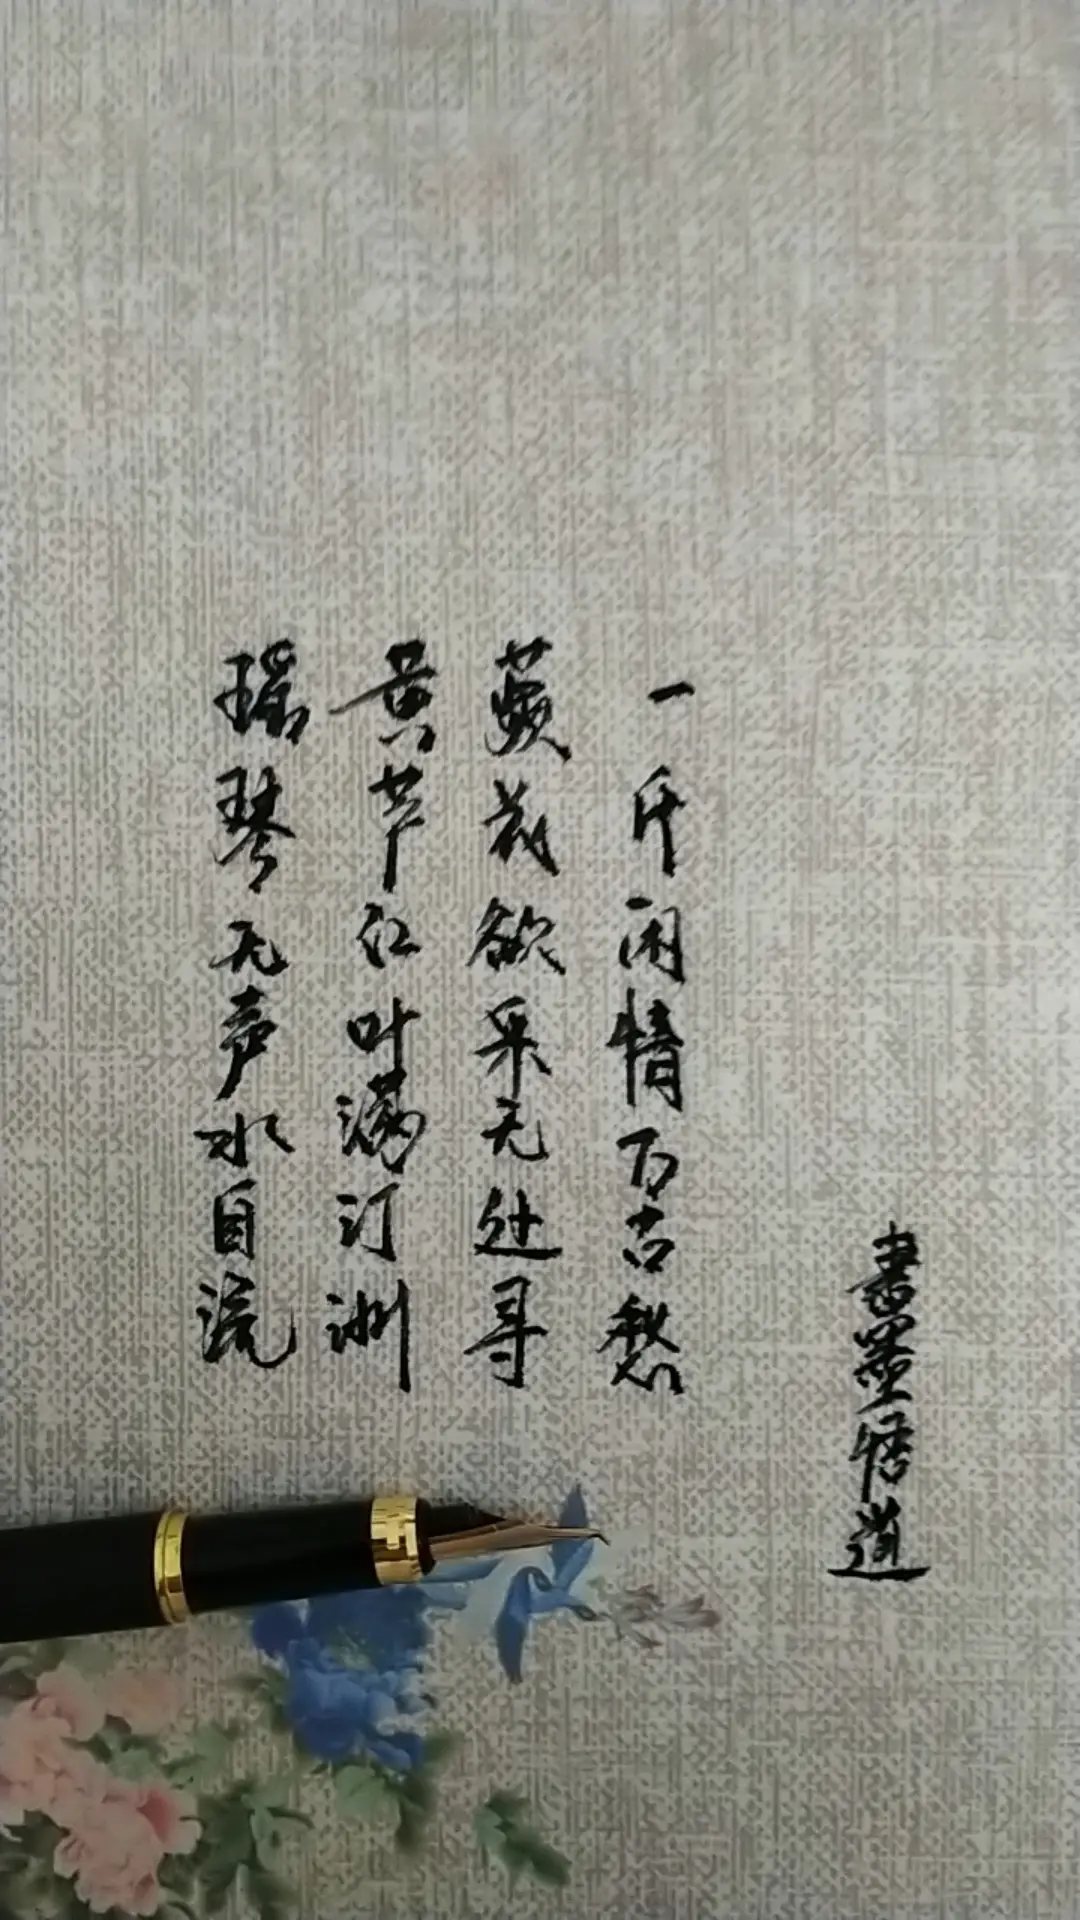 瑶琴无声水自流
黄芦红叶满汀洲
蘋花欲采无处寻
一片闲情万古愁
書墨悟道